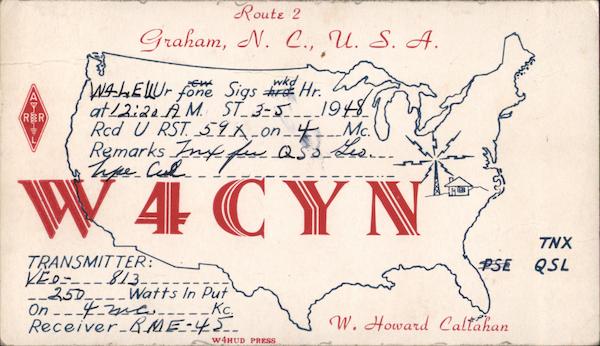 Route 2
Graham, N. C., U. S. A.
W4LEW Ur fone CW Sigs hrd wkd Hr.
at 12:20 A M. ST 3-5 1948
Rcd U RST 59X on 4 Mc.
Remarks Tnx fer QSO Geo.
hpe Cul
ARRL
W4CYN
TRANSMITTER:
VFO- 813
250 Watts In Put
On 4 mc. Kc.
Receiver RME-45
TNX
PSE QSL
W. Howard Callahan
W4HUD PRESS